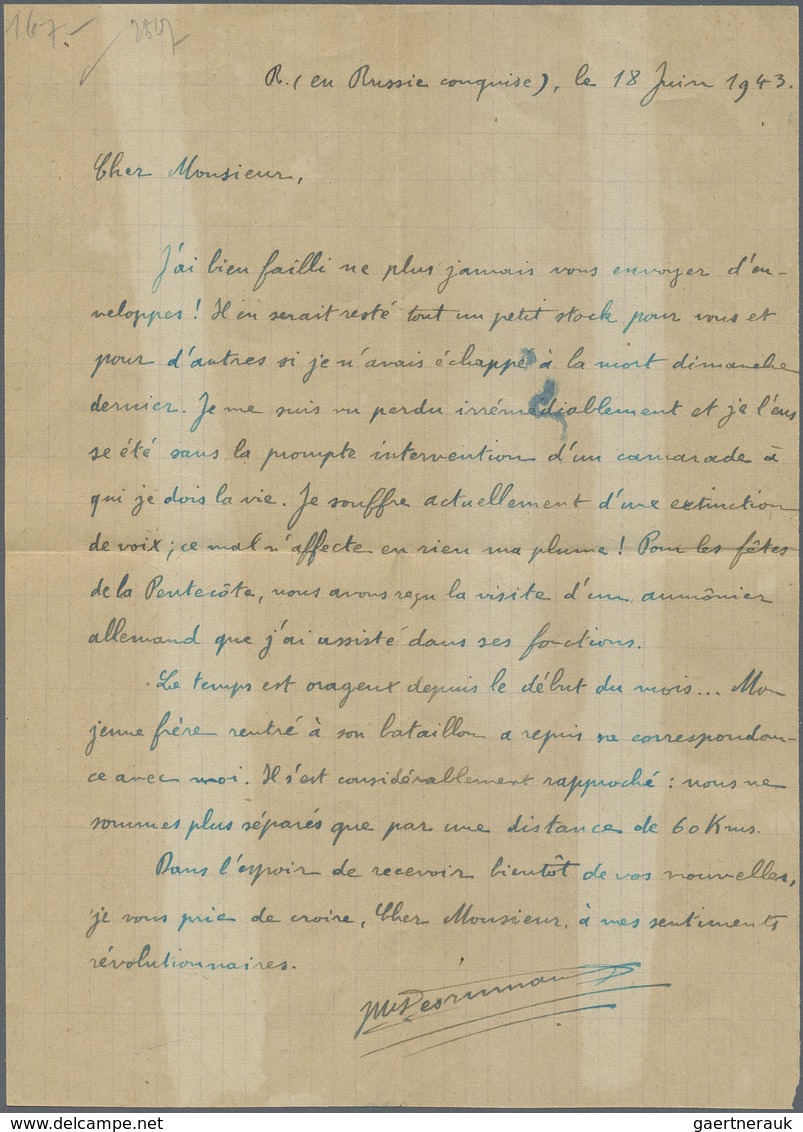 167-
R. (en Russie conquise), le 18 Juin 1943.
Cher Monsieur,
J'ai bien failli ne plus jamais vous envoyer d'en-
veloppes ! Il en serait resté tout un petit stock pour vous et
pour d'autres si je n'avais échappé à la mort dimanche
dernier. Je me suis vu perdu irrémédiallement et je l'eus
se été sans la prompte intervention d'un camarade à
qui je dois la vie. Je souffre actuellement d'une extinction
de voix ; ce mal n'affecte en rien ma plume ! Pour les fêtes
de la Pentecôte, nous avons reçu la visite d'un aumônier
allemand que j'ai assisté dans ses fonctions.
Le temps est orageux depuis le début du mois... Mon
jeune frère rentré à son bataillon a repris sa correspondan-
ce avec moi. Il s'est considérallement rapproché : nous ne
sommes plus séparés que par une distance de 60 Kms.
Dans l'espoir de recevoir bientôt de vos nouvelles,
je vous prie de croire, Cher Monsieur, à mes sentiments
révolutionnaires.
gaertnerauk